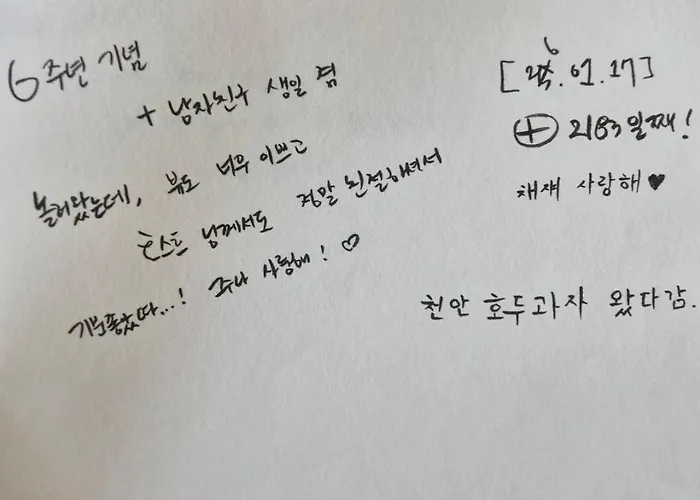 6주년 기념
+ 남자친구 생일 겸
놀러왔는데, 뷰도 너무 이쁘고
호스트 님께서도 정말 친절하셔서
기분좋았따...! 주나 사랑해! ♡
[26.01.17]
⊕ 2183일째!
채재 사랑해♥
천안 호두과자 왔다감.